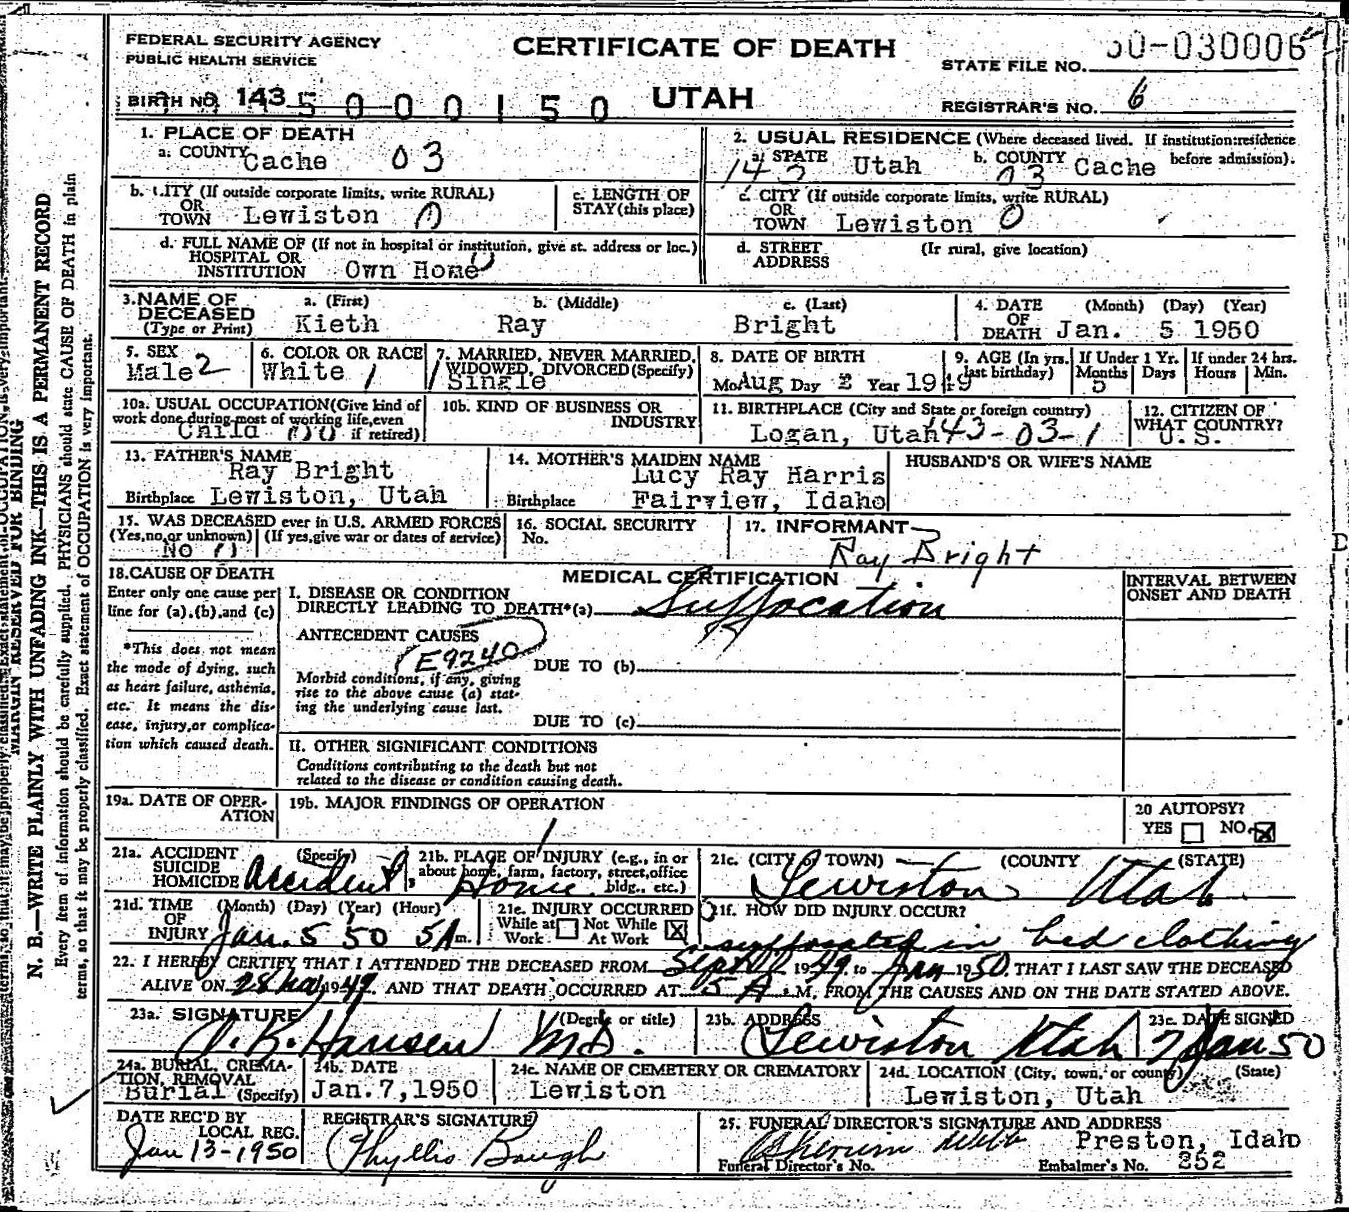 FEDERAL SECURITY AGENCY
PUBLIC HEALTH SERVICE
CERTIFICATE OF DEATH
UTAH
STATE FILE NO. 50-030006
REGISTRAR'S NO. 6
BIRTH NO. 143 5 0 0 0 1 5 0
1. PLACE OF DEATH
a. COUNTY Cache 03
b. CITY (If outside corporate limits, write RURAL)
OR
TOWN Lewiston 0
c. LENGTH OF
STAY (this place)
d. FULL NAME OF (If not in hospital or institution, give st. address or loc.)
HOSPITAL OR
INSTITUTION Own Home
2. USUAL RESIDENCE (Where deceased lived. If institution:residence
before admission).
a. STATE 143 Utah b. COUNTY 03 Cache
c. CITY (If outside corporate limits, write RURAL)
OR
TOWN Lewiston 0
d. STREET (Ir rural, give location)
ADDRESS
3.NAME OF
DECEASED
(Type or Print)
a. (First) b. (Middle) c. (Last)
Kieth Ray Bright
4. DATE (Month) (Day) (Year)
OF
DEATH Jan. 5 1950
5. SEX
Male 2
6. COLOR OR RACE
White 1
7. MARRIED, NEVER MARRIED,
WIDOWED, DIVORCED (Specify)
1 Single
8. DATE OF BIRTH
Mo Aug Day 2 Year 1949
9. AGE (In yrs.
last birthday)
If Under 1 Yr.
Months Days
5
If under 24 hrs.
Hours Min.
10a. USUAL OCCUPATION (Give kind of
work done during most of working life, even
if retired)
Child
10b. KIND OF BUSINESS OR
INDUSTRY
11. BIRTHPLACE (City and State or foreign country)
Logan, Utah 43-03-1
12. CITIZEN OF
WHAT COUNTRY?
U.S.
13. FATHER'S NAME
Ray Bright
Birthplace Lewiston, Utah
14. MOTHER'S MAIDEN NAME
Lucy Ray Harris
Birthplace Fairview, Idaho
HUSBAND'S OR WIFE'S NAME
15. WAS DECEASED ever in U.S. ARMED FORCES
(Yes, no, or unknown) (If yes, give war or dates of service)
No
16. SOCIAL SECURITY
No.
17. INFORMANT
Ray Bright
18.CAUSE OF DEATH
Enter only one cause per
line for (a), (b), and (c)
*This does not mean
the mode of dying, such
as heart failure, asthenia,
etc. It means the dis-
ease, injury, or complica-
tion which caused death.
MEDICAL CERTIFICATION
I. DISEASE OR CONDITION
DIRECTLY LEADING TO DEATH*(a) Suffocation
ANTECEDENT CAUSES
E9240
DUE TO (b)
Morbid conditions, if any, giving
rise to the above cause (a) stat-
ing the underlying cause last.
DUE TO (c)
II. OTHER SIGNIFICANT CONDITIONS
Conditions contributing to the death but not
related to the disease or condition causing death.
INTERVAL BETWEEN
ONSET AND DEATH
19a. DATE OF OPER-
ATION
19b. MAJOR FINDINGS OF OPERATION
20 AUTOPSY?
YES NO
21a. ACCIDENT (Specify)
SUICIDE
HOMICIDE Accident
21b. PLACE OF INJURY (e.g., in or
about home, farm, factory, street, office
bldg., etc.)
Home
21c. (CITY OR TOWN) (COUNTY (STATE)
Lewiston Utah
21d. TIME (Month) (Day) (Year) (Hour)
OF
INJURY Jan. 5 50 5 A m.
21e. INJURY OCCURRED
While at Not While
Work At Work
21f. HOW DID INJURY OCCUR?
suffocated in bed clothing
22. I HEREBY CERTIFY THAT I ATTENDED THE DECEASED FROM Sept 1949 to Jan 1950. THAT I LAST SAW THE DECEASED
ALIVE ON 28 Nov, 1949. AND THAT DEATH OCCURRED AT 5 A. M, FROM THE CAUSES AND ON THE DATE STATED ABOVE.
23a. SIGNATURE (Degree or title)
Hansen M.D.
23b. ADDRESS
Lewiston Utah
23c. DATE SIGNED
7 Jan 50
24a. BURIAL, CREMA-
TION, REMOVAL
(Specify)
Burial
24b. DATE
Jan. 7, 1950
24c. NAME OF CEMETERY OR CREMATORY
Lewiston
24d. LOCATION (City, town, or county) (State)
Lewiston, Utah
DATE REC'D BY
LOCAL REG.
Jan 13-1950
REGISTRAR'S SIGNATURE
Phyllis Baugh
25. FUNERAL DIRECTOR'S SIGNATURE AND ADDRESS
Webb Preston, Idaho
Funeral Director's No. Embalmer's No. 252
MARGIN RESERVED FOR BINDING
N. B.—WRITE PLAINLY WITH UNFADING INK—THIS IS A PERMANENT RECORD
Every item of information should be carefully supplied. PHYSICIANS should state CAUSE OF DEATH in plain
terms, so that it may be properly classified. Exact statement of OCCUPATION is very important.